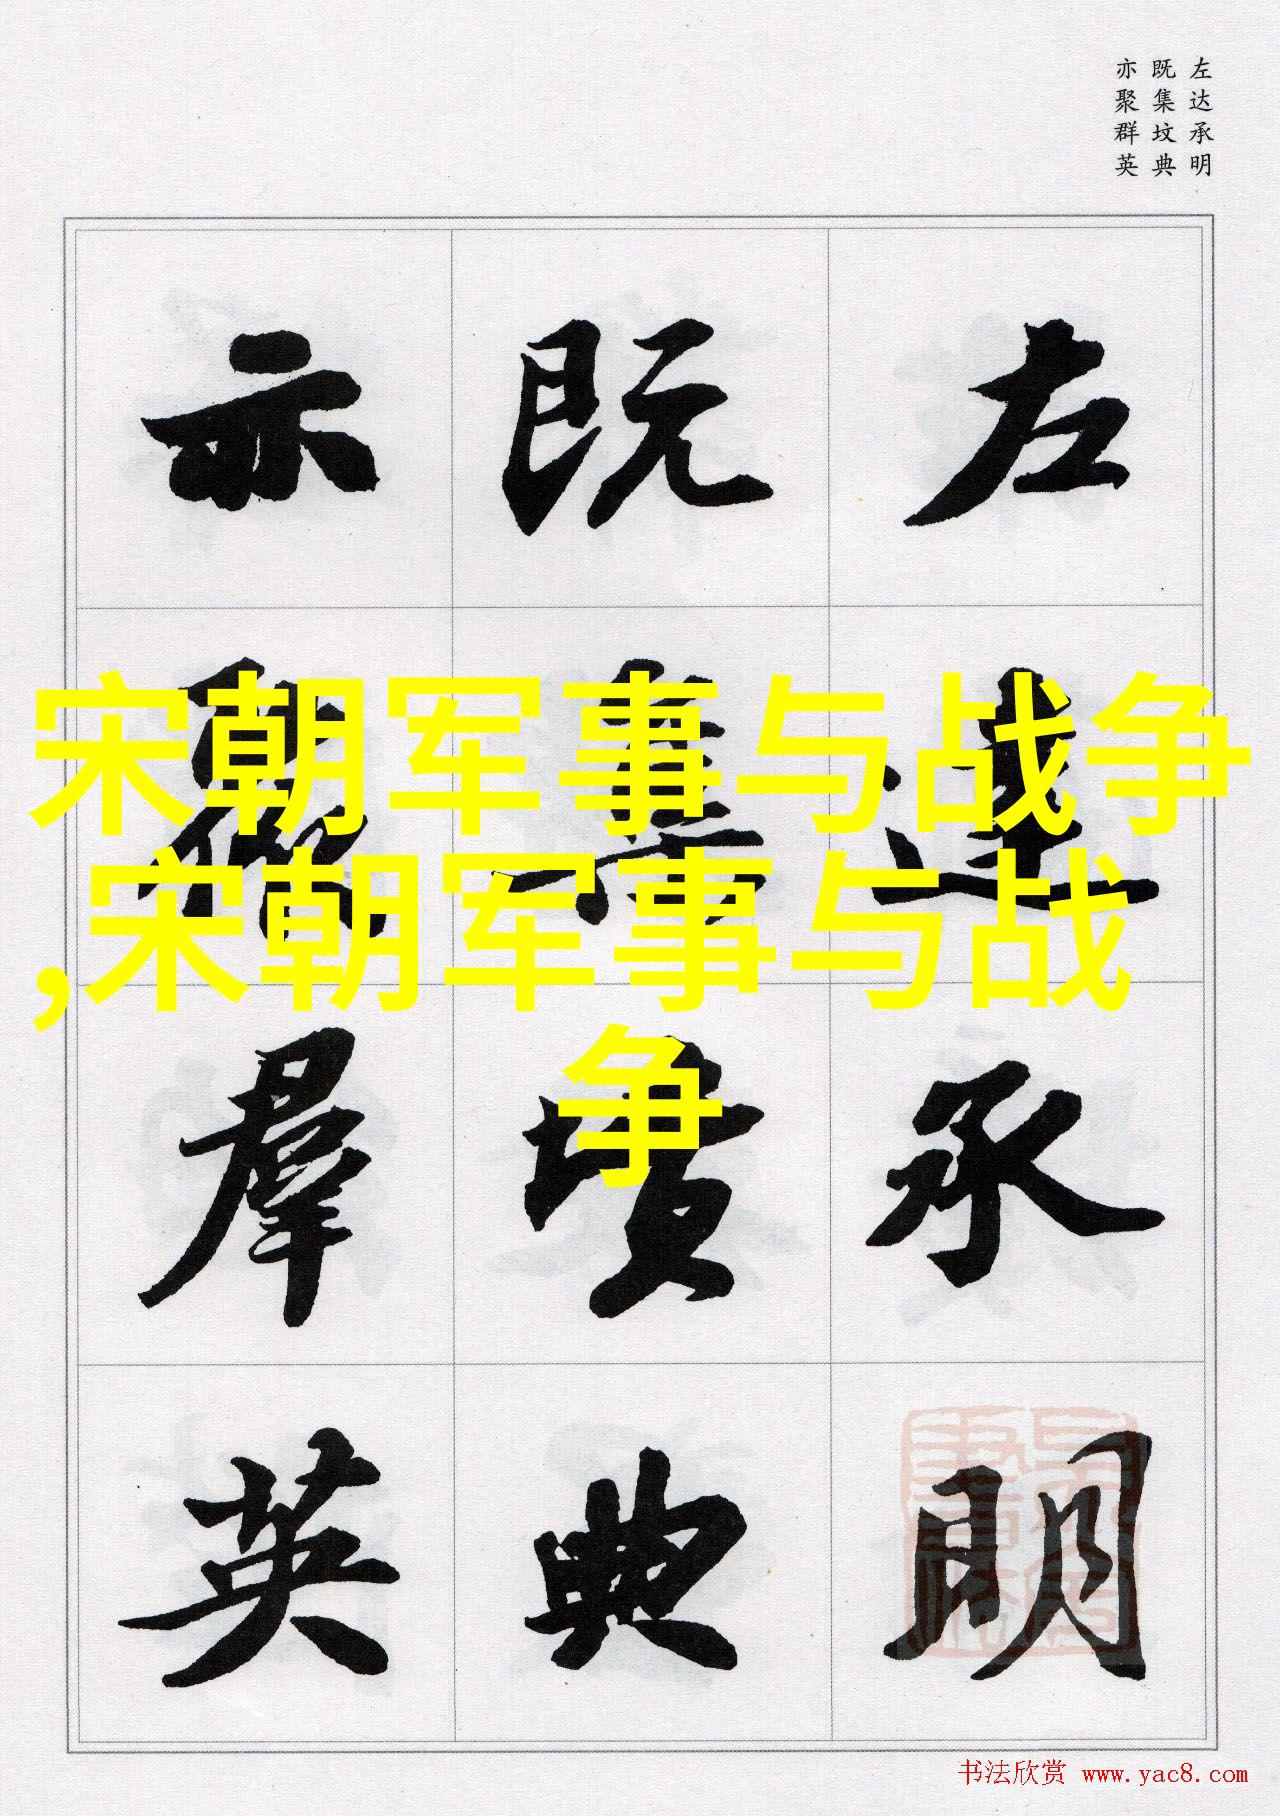 左达承明
既集坟典
亦聚群英
左達承明
既集墳典
亦聚羣英
宋朝军事与战争
,宋朝军事与战
争
书法欣赏 www.yac8.com